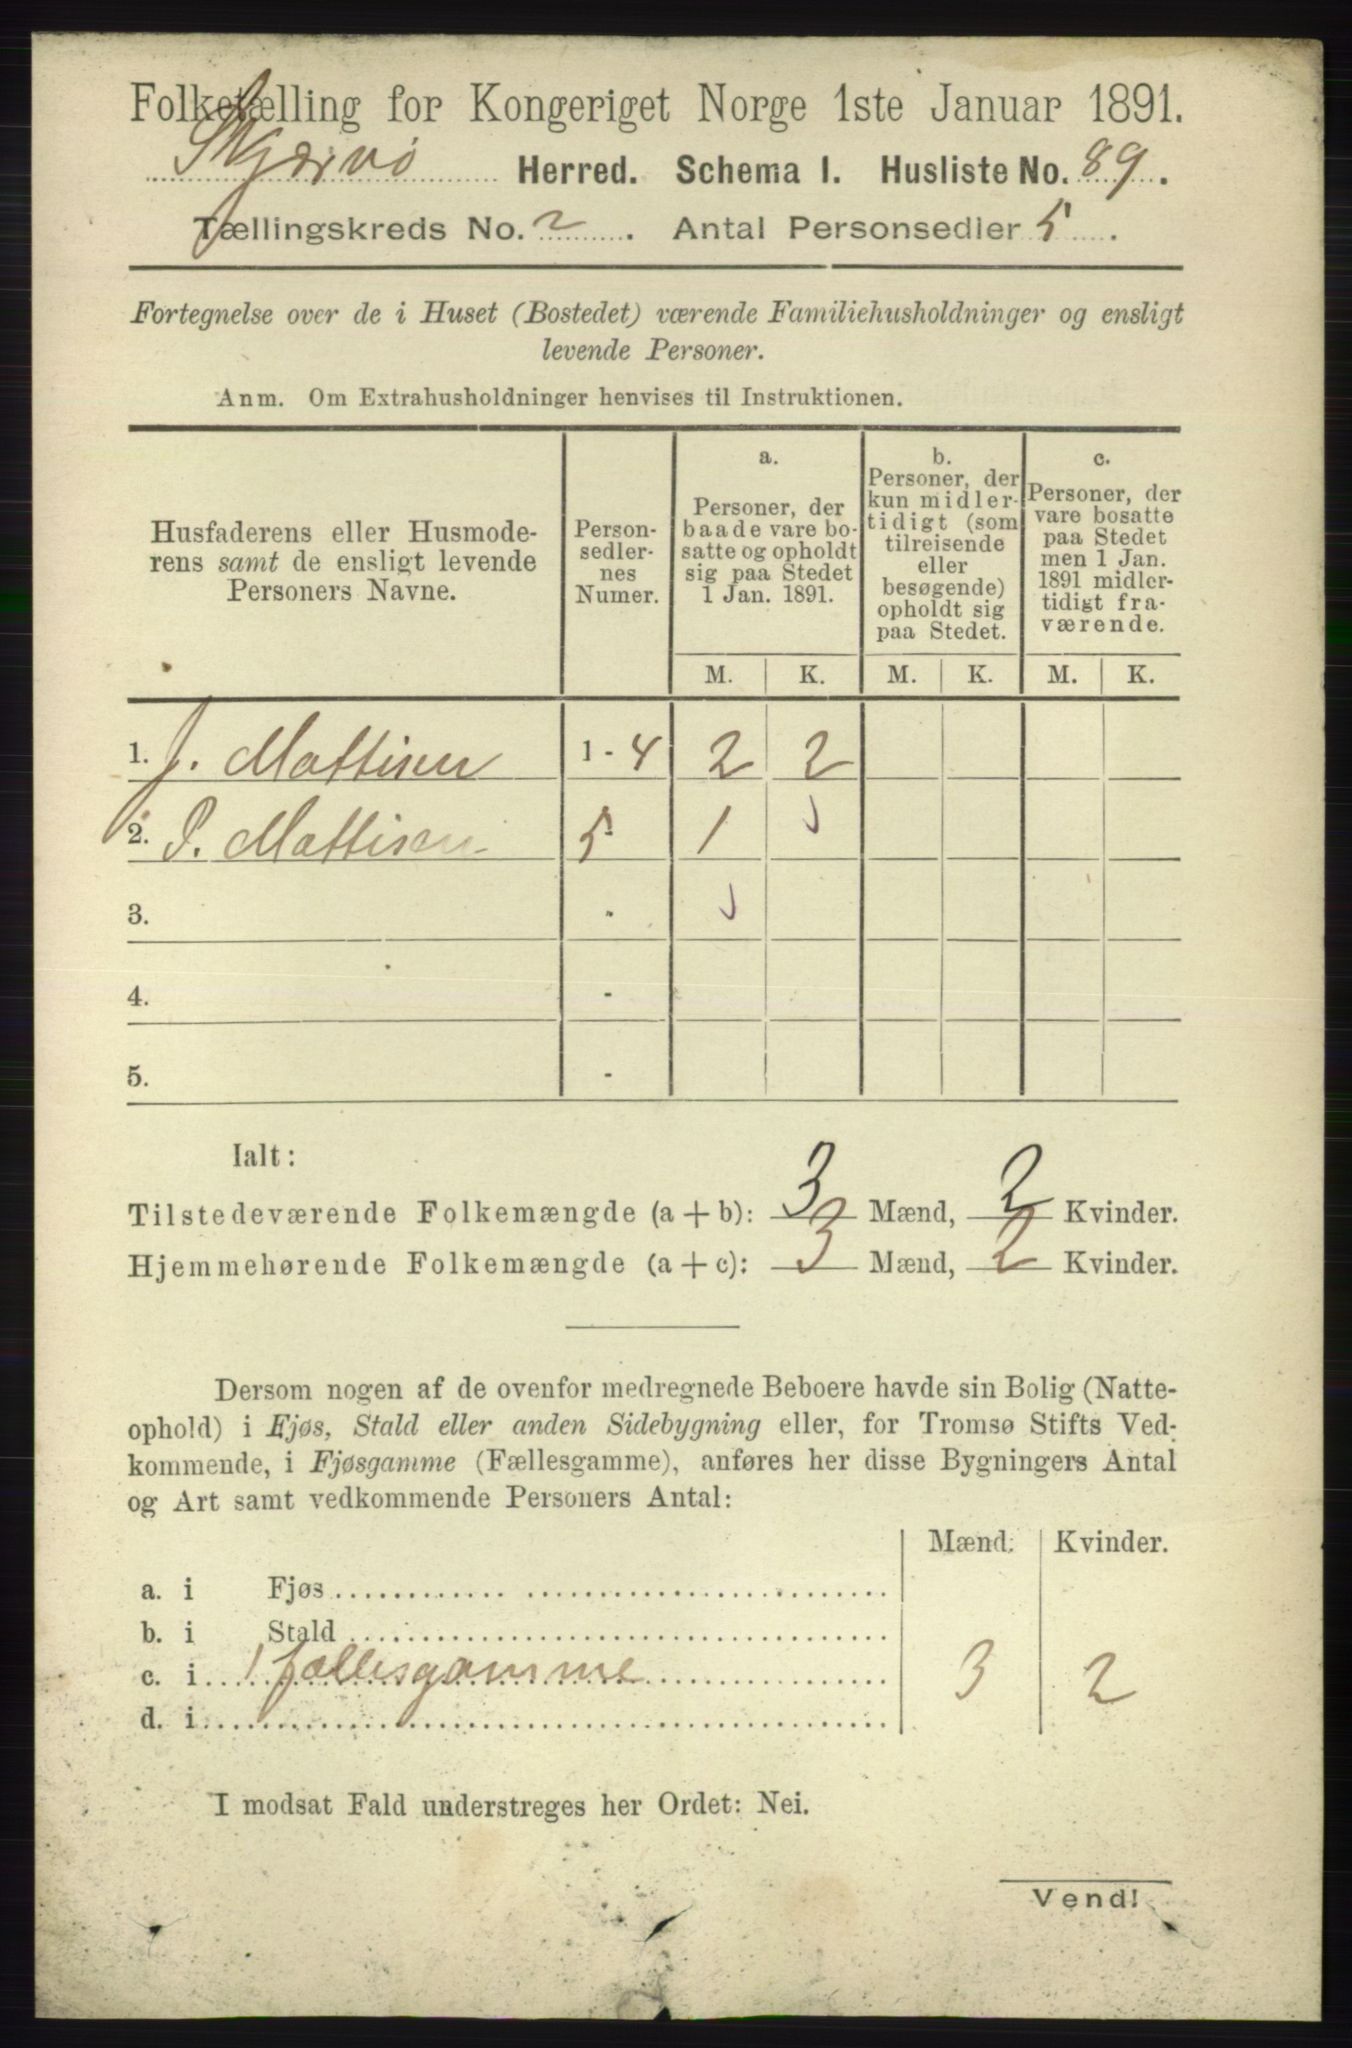 Folketælling for Kongeriget Norge 1ste Januar 1891.
Skjærvø Herred. Schema 1. Husliste No. 89.
Tællingskreds No. 2. Antal Personsedler 5.
Fortegnelse over de i Huset (Bostedet) værende Familiehusholdninger og ensligt
levende Personer.
Anm. Om Extrahusholdninger henvises til Instruktionen.
Husfaderens eller Husmode-
rens samt de ensligt levende
Personers Navne.
Person-
sedler-
nes
Numer.
a.
Personer, der
baade vare bo-
satte og opholdt
sig paa Stedet
1 Jan. 1891.
b.
Personer, der
kun midler-
tidigt (som
tilreisende
eller
besøgende)
opholdt sig
paa Stedet.
c.
Personer, der
vare bosatte
paa Stedet
men 1 Jan.
1891 midler-
tidigt fra-
værende.
M. K. M. K. M. K.
1. J. Mattisen 1 - 4 2 2
2. P. Mattisen 5 1
3. -
4. -
5. -
Ialt:
Tilstedeværende Folkemængde (a + b): 3 Mænd, 2 Kvinder.
Hjemmehørende Folkemængde (a + c): 3 Mænd, 2 Kvinder.
Dersom nogen af de ovenfor medregnede Beboere havde sin Bolig (Natte-
ophold) i Fjøs, Stald eller anden Sidebygning eller, for Tromsø Stifts Ved-
kommende, i Fjøsgamme (Fællesgamme), anføres her disse Bygningers Antal
og Art samt vedkommende Personers Antal:
Mænd. Kvinder.
a. i Fjøs
b. i Stald
c. i 1 fællesgamme 3 2
d. i
I modsat Fald understreges her Ordet: Nei.
Vend!